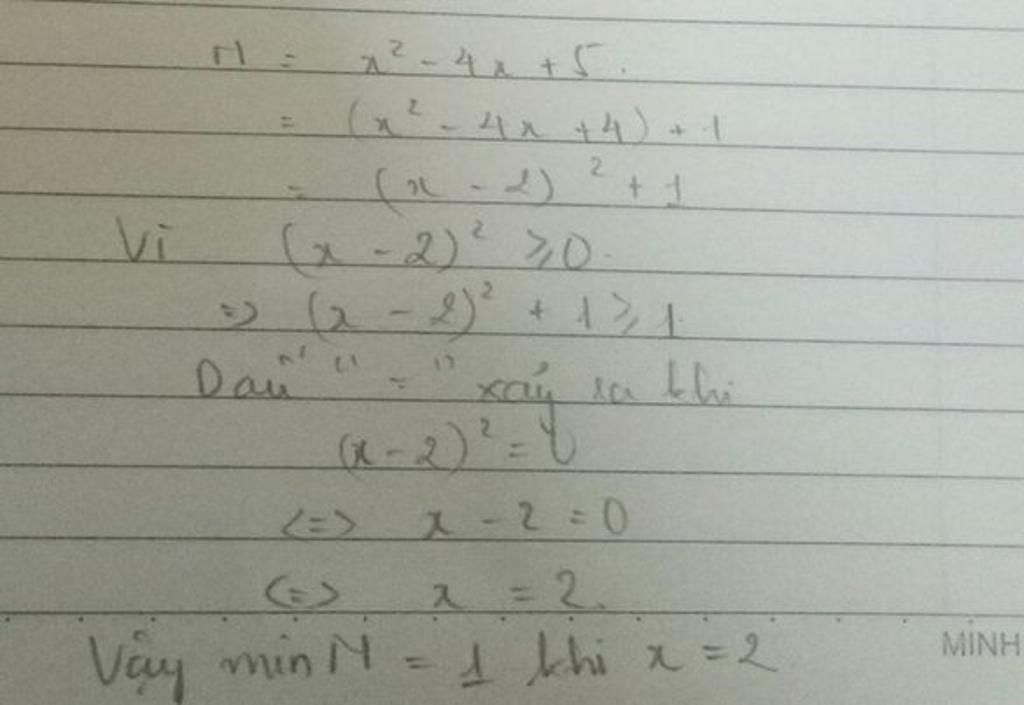 M = x² - 4x + 5.
= (x² - 4x + 4) + 1
= (x - 2)² + 1
Vì (x - 2)² ⩾ 0.
=> (x - 2)² + 1 ⩾ 1
Dấu "=" xảy ra khi
(x - 2)² = 0
<=> x - 2 = 0
<=> x = 2.
Vậy min M = 1 khi x = 2
MINH